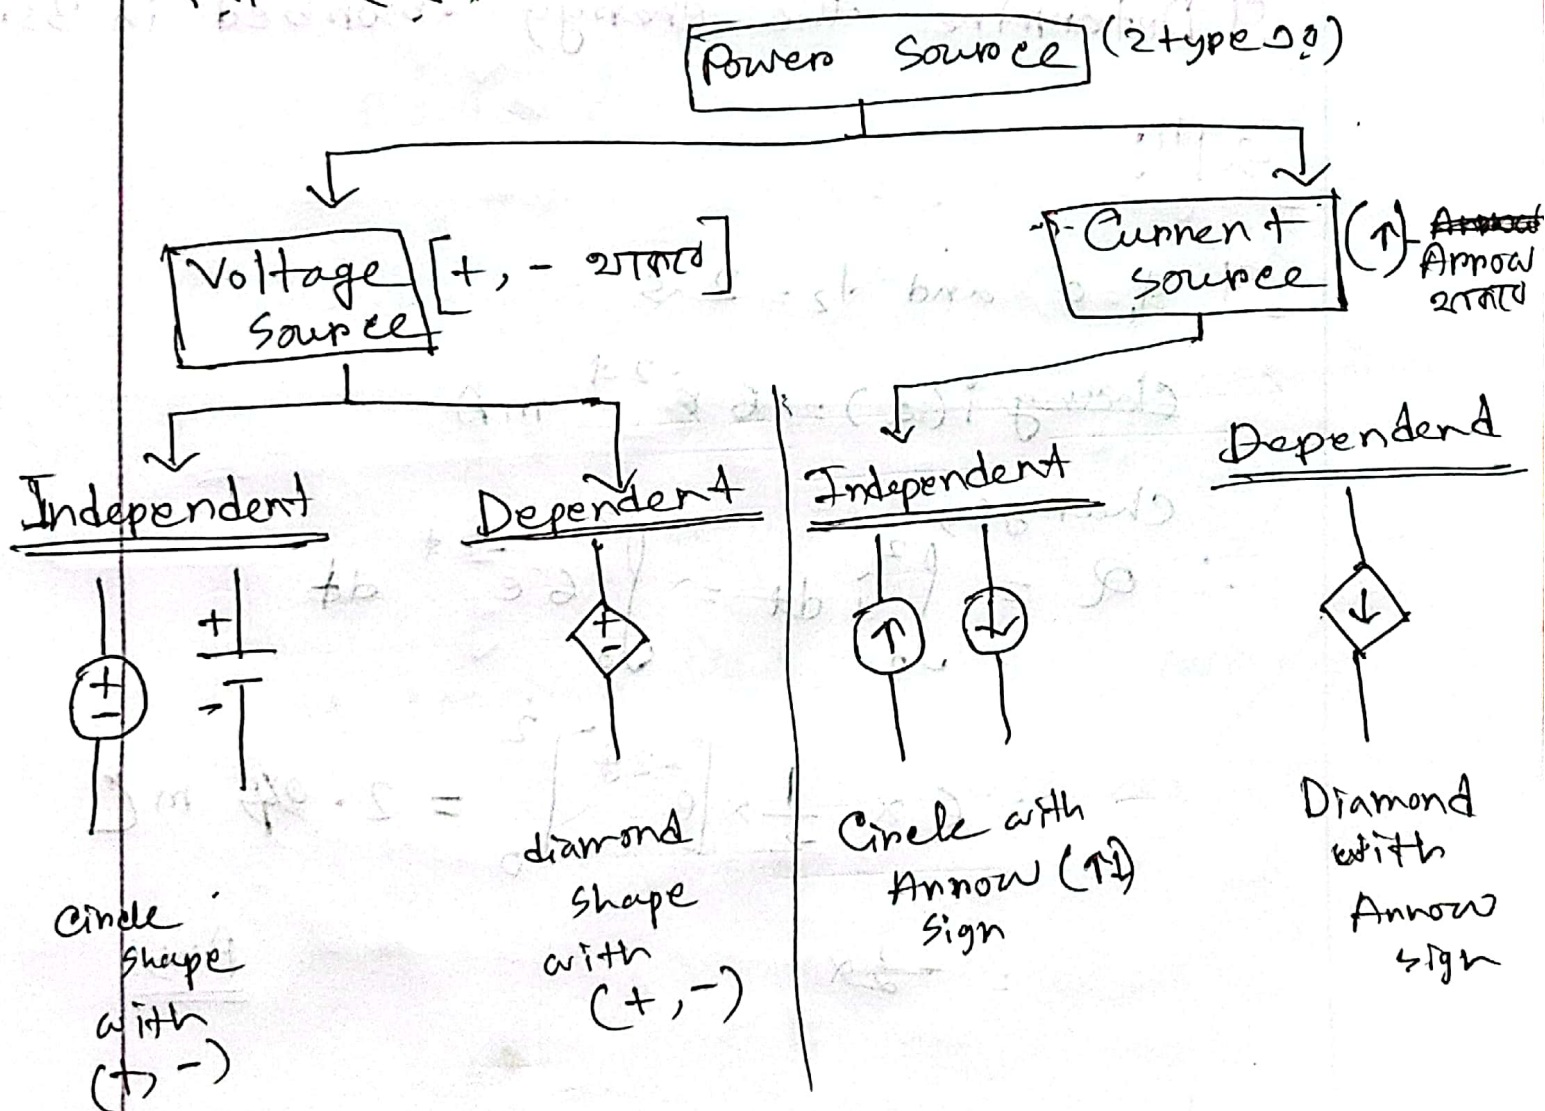 Power Source (2 type এর)
Voltage Source [+, - থাকবে]
Current source (↑) Arrow থাকবে
Independent
Dependent
Independent
Dependend
+
-
+
-
+
-
↑
↓
↓
Circle shape with (+, -)
diamond shape with (+, -)
Circle with Arrow (↑↓) sign
Diamond with Arrow sign